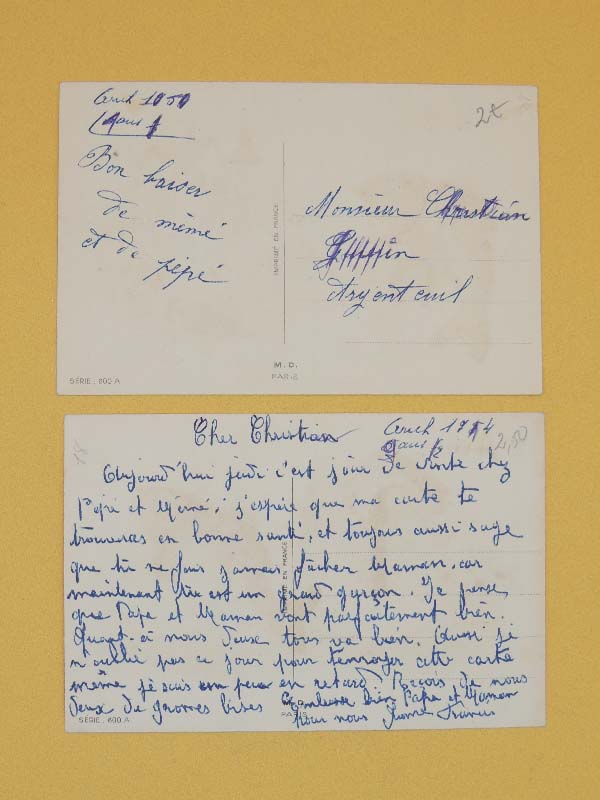 1950
2€
Bon baiser
de mémé
et de pépé
Monsieur Christian
Argenteuil
IMPRIMÉ EN FRANCE
M. D.
PARIS
SÉRIE. 600 A
Cher Christian
2,50
Aujourd'hui jeudi c'est jour de chez
Pépé et Mémé, j'espère que ma carte te
trouveras en bonne santé, et toujours aussi sage
que tu ne fais jamais fâcher Maman, car
maintenant tu est un grand garçon. Je pense
que Papa et Maman vont parfaitement bien.
Quant-à nous deux tous va bien. Aussi je
n'oublie pas ce jour pour t'envoyer cette carte
même je suis un peu en retard. Reçois de nous
deux de grosses bises Embrasse bien Papa et Maman
Pour nous
EN FRANCE
PARIS
SÉRIE. 600 A